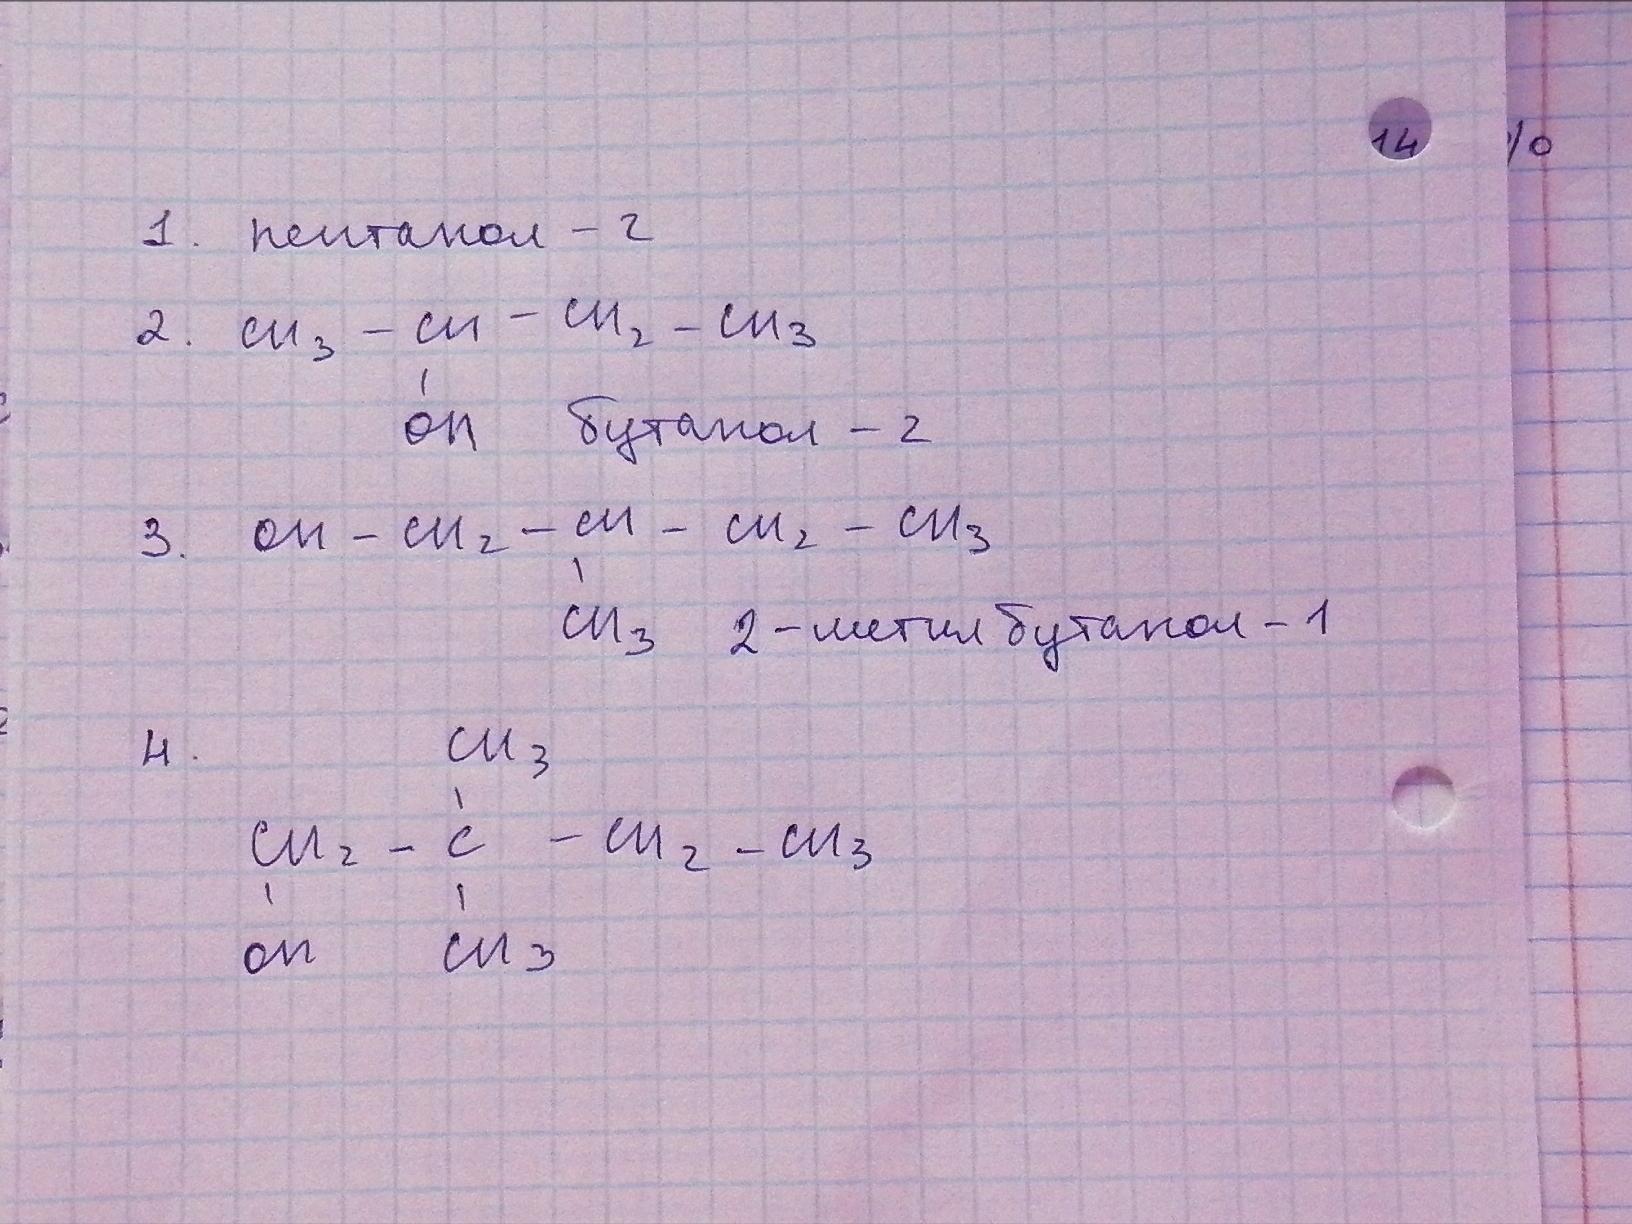 14 %
1. пентанол - 2
2. CH3 - CH - CH2 - CH3
OH бутанол - 2
3. OH - CH2 - CH - CH2 - CH3
CH3 2-метилбутанол - 1
4. CH3
CH2 - C - CH2 - CH3
OH CH3